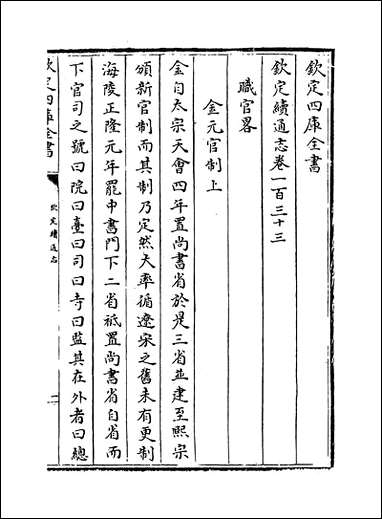 欽定四庫全書
欽定續通志卷一百三十三
職官畧
金元官制上
金自太宗天會四年置尚書省於是三省並建至熙宗
頒新官制而其制乃定然大率循遼宋之舊未有更制
海陵正隆元年罷中書門下二省祗置尚書省自省而
下官司之號曰院曰臺曰司曰寺曰監其在外者曰總
欽定四庫全書
欽定續通志